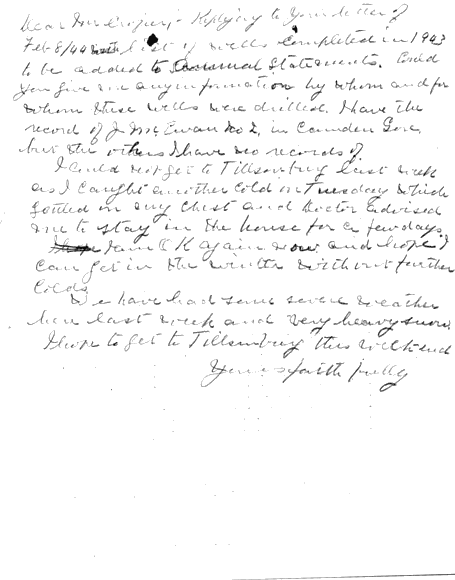 Dear Mr Replying to Your letter of
Feb 8/44 list of wells Completed in 1943
to be added to Annual Statements. Could
you give me any information by whom and for
whom these wells were drilled. I have the
record of J McEwan No 2, in Camden Gore,
but the others I have no records of.
I could not get to Tillsonburg last week
as I caught another Cold on Tuesday which
settled in my Chest and Doctor advised
me to stay in the house for a few days.
I am O K again now and hope I
can get in the winter without further
Colds
We have had some severe weather
here last week and very heavy snow.
I hope to get to Tillsonburg this weekend
Yours faithfully